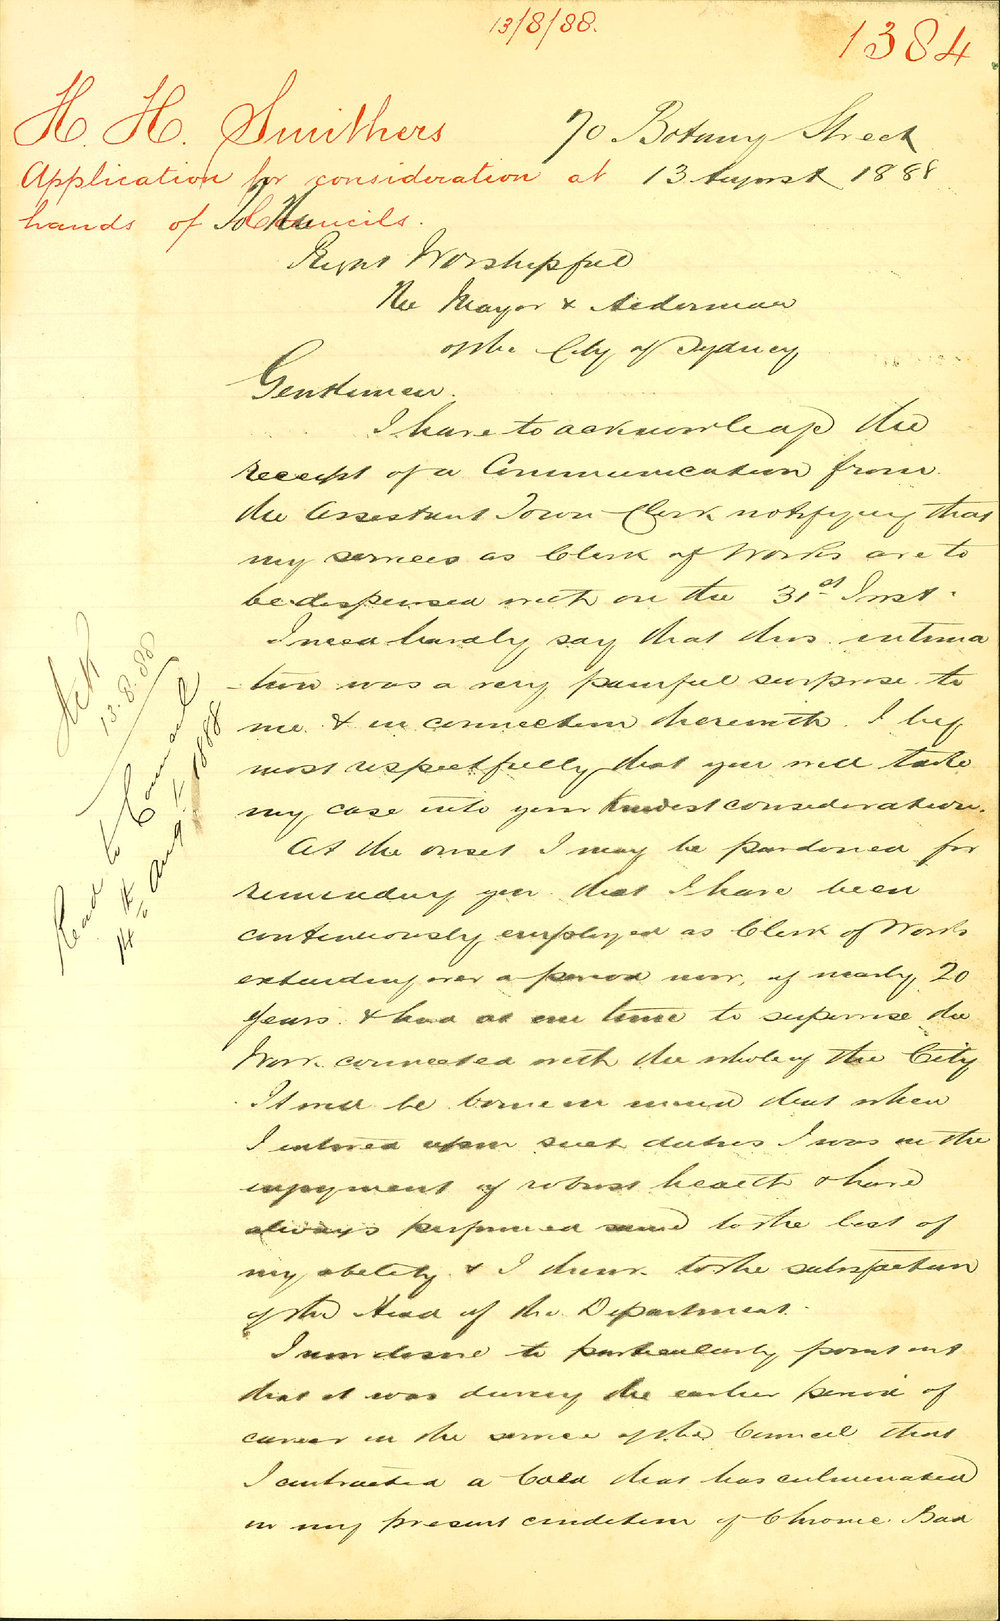 13/8/88.
1384
H. H. Smithers
Application for consideration at
hands of Councils.
70 Botany Street
13 August 1888
To The
Right Worshipful
The Mayor & Aldermen
of the City of Sydney
Gentlemen.
I have to acknowledge the
receipt of a Communication from
the Assistant Town Clerk notifying that
my services as Clerk of Works are to
be dispensed with on the 31st Inst.
I need hardly say that this intima
-tion was a very painful surprise to
me & in connection therewith I beg
most respectfully that you will take
my case into your kindest consideration.
At the onset I may be pardoned for
reminding you that I have been
continuously employed as Clerk of Works
extending over a period now, of nearly 20
years & had at one time to supervise the
Work connected with the whole of the City
It will be borne in mind that when
I entered upon such duties I was in the
enjoyment of robust health & have
always performed same to the best of
my ability & I think to the satisfaction
of the Head of the Department.
I now desire to particularly point out
that it was during the earlier period of
career in the service of the Council that
I contracted a Cold that has culminated
in my present condition of Chronic Bad
Ack
13.8.88
Read to Council
14th Aug. 1888